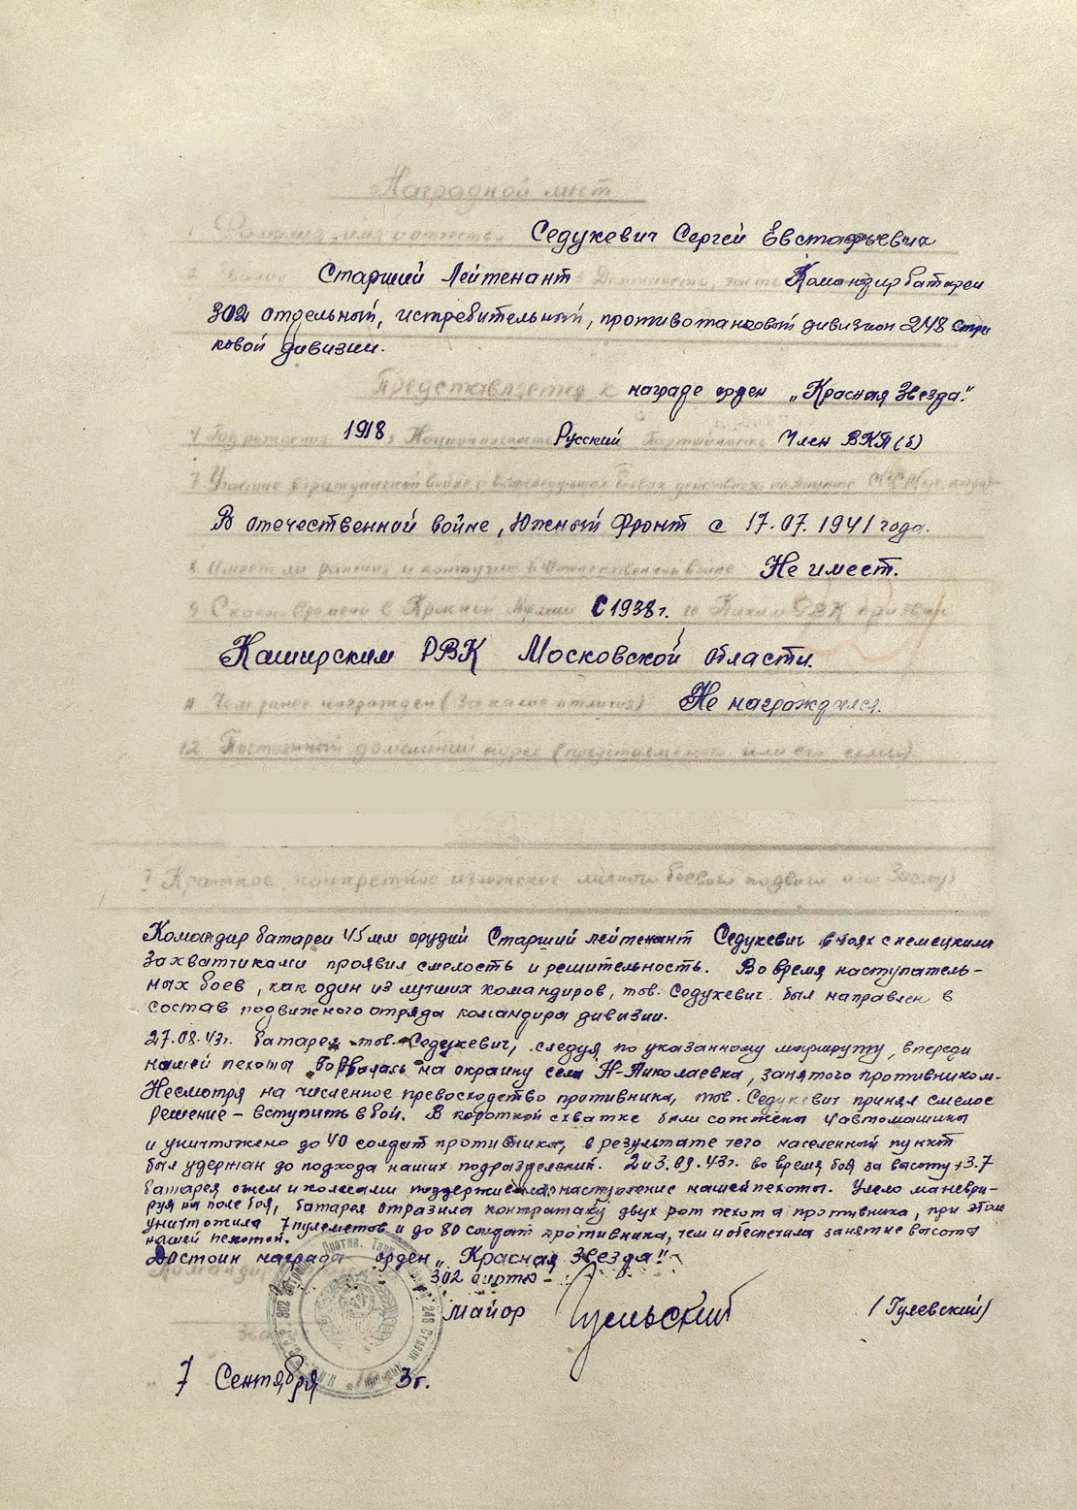 Наградной лист
1 Фамилия, имя и отчество Седукевич Сергей Евстафьевич
2. Звание Старший Лейтенант 3 Должность, часть Командир батареи
302 отдельный, истребительный, противотанковый дивизион 248 стрел
ковой дивизии.
Представляется к награде орден „Красная Звезда".
4 Год рождения 1918 5 Национальность Русский Партийность Член ВКП(б)
7. Участие в гражданской войне и боевых действиях по защите СССР
В отечественной войне, Южный Фронт с 17.07.1941 года.
8. Имеет ли ранения и контузии в Отечественной войне Не имеет.
9 С какого времени в Красной Армии С 1938 г. 10 Каким РВК призван
Каширским РВК Московской области.
11 Чем ранее награжден (за какие отличия) Не награждался.
12 Постоянный домашний адрес (представляемого или его семьи)
I Краткое, конкретное изложение личного боевого подвига или заслуг
Командир батареи 45 мм орудий Старший лейтенант Седукевич в боях с немецкими
захватчиками проявил смелость и решительность. Во время наступатель-
ных боев, как один из лучших командиров, тов. Седукевич был направлен в
состав подвижного отряда командира дивизии.
27.08.43г. батарея тов. Седукевич, следуя по указанному маршруту, впереди
нашей пехоты ворвалась на окраину села Н-Николаевка, занятого противником.
Несмотря на численное превосходство противника, тов. Седукевич принял смелое
решение – вступить в бой. В короткой схватке были сожжены 4 автомашины
и уничтожено до 40 солдат противника, в результате чего населенный пункт
был удержан до подхода наших подразделений. 2 и 3.09.43г. во время боя за высоту 43.7
батарея огнем и колесами поддерживала наступление нашей пехоты. Умело маневри-
руя на поле боя, батарея отразила контратаку двух рот пехоты противника, при этом
уничтожила 7 пулеметов и до 80 солдат противника, чем и обеспечила занятие высоты
нашей пехотой.
Достоин награда орден „Красная Звезда"!
Командир 302
майор (Гулевский)
7 Сентября 3г.